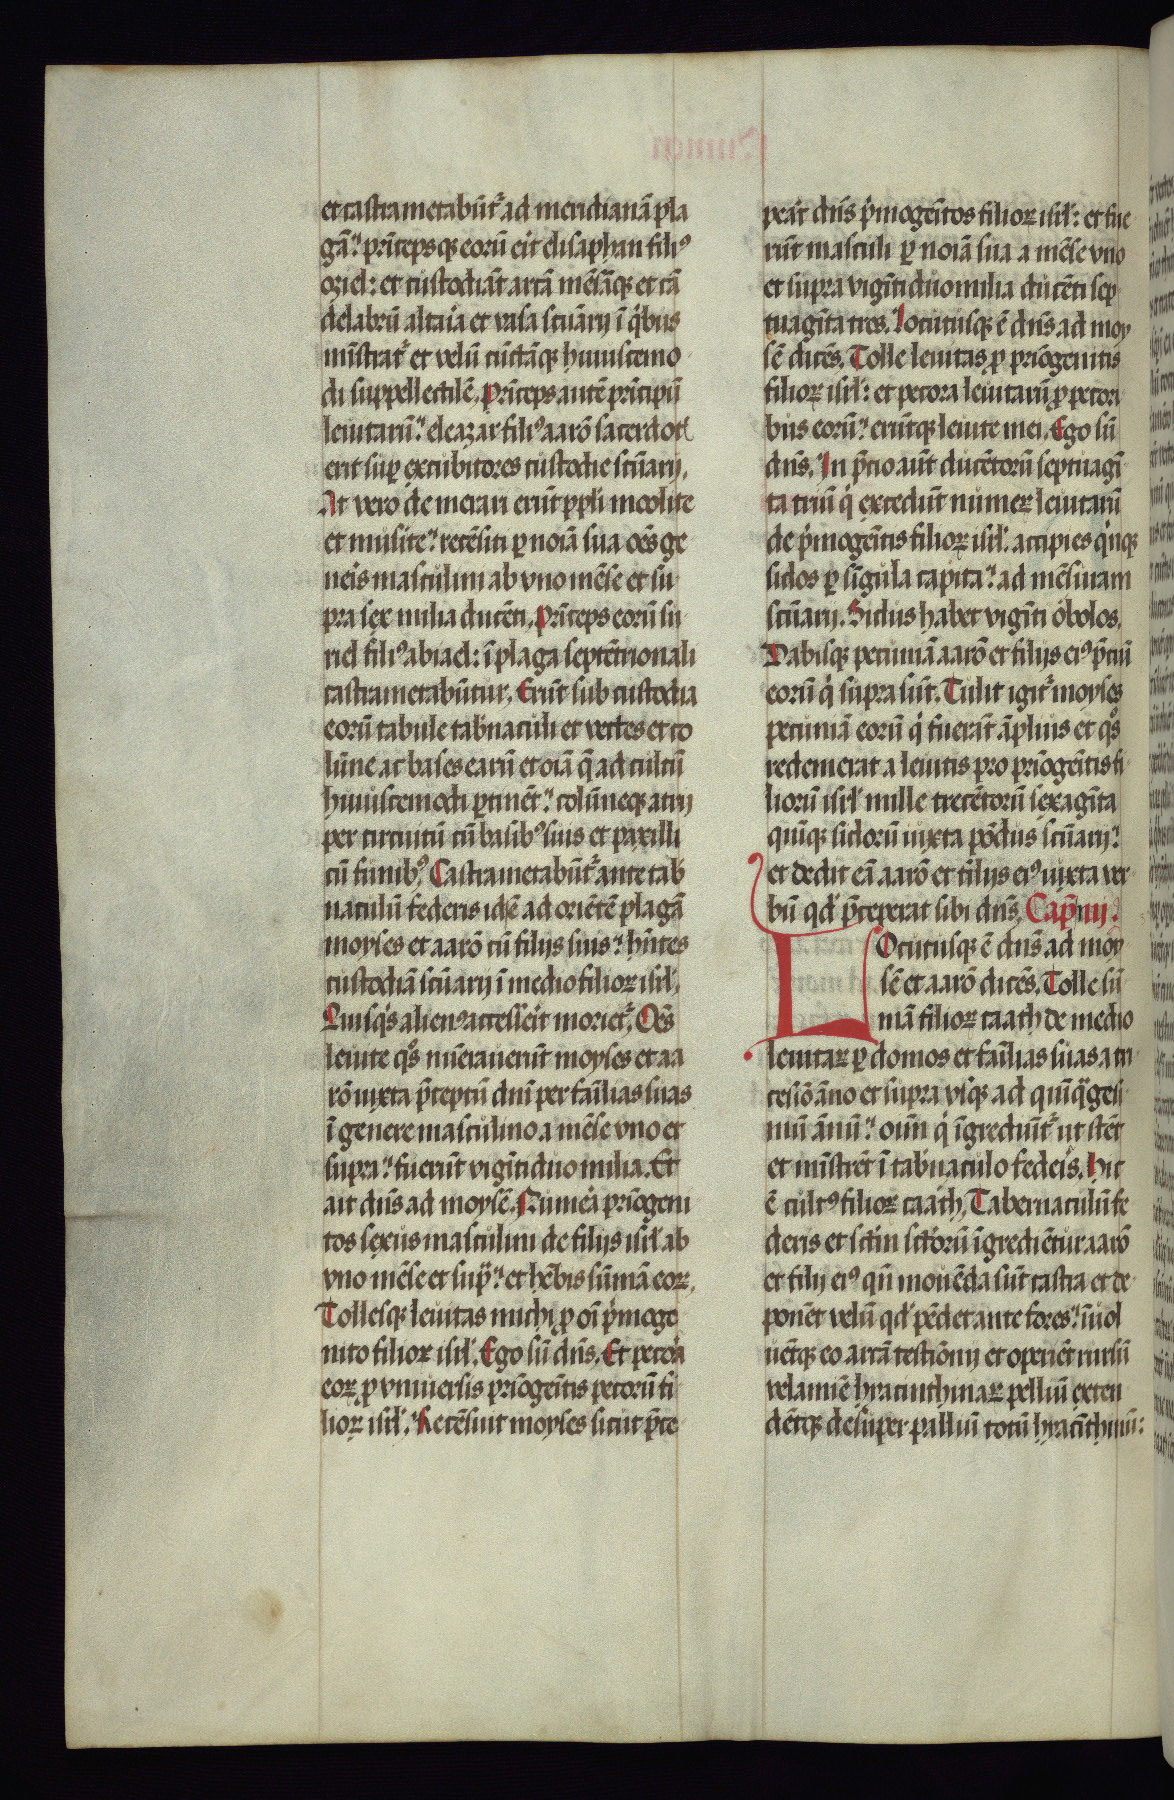 et castrametabūt᷑ ad meridianā pla
gā. prīcepsqꝫ eorū eīt elisaphan fili⁹
oziel: et custodiāt arcā mēsāqꝫ et cā
delabrū altaīa et vasa scūarij ī q̇bus
mīstrat᷑ et velū cūctāqꝫ huiuscemo
di suppellectilē. Prīceps autē prīcipū
leuitarū. eleazar fili⁹ aarō sacerdoƚ
erit suꝑ excubitores custodie scūarij.
At vero de merari erūt ꝓpli moolite
et musite. recēsiti ꝑ noīa sua oēs ge
neīs masculini ab vno mēse et su
pra sex milia ducēti. Prīceps eorū su
riel fili⁹ abiael: ī plaga septētrionali
castrametabūtur. Erūt sub custodia
eorū tabule tab̄naculi et vectes et co
lūne ac bases earū et oīa q̄ ad cultū
huiuscemodi ꝑtinēt. colūneqꝫ atrij
per circuitū cū basib⁹ suis et paxilli
cū funib⁹. Castrametabūt᷑ ante tab̄
naculū federis idē ad oriētē plagā
moyses et aarō cū filijs suis. hn̄tes
custodiā scūarij ī medio filioꝝ isrl̄.
Quisq̇s alien⁹ accesseīt moriet᷑. Oēs
leuite q̊s nūerauerūt moyses et aa
rō iuxta p̄ceptū dnī per faīlias suas
ī genere masculino a mēse vno et
supra. fuerūt vigīti duo milia. Et
ait dn̄s ad moysē. Numeā prīogeni
tos sexus masculini de filijs isrl̄ ab
vno mēse et sup̄. et hēbis sūmā eoꝝ.
Tollesqꝫ leuitas michi ꝓ oī p̄moge
nito filioꝝ isrl̄. Ego sū dn̄s. Et pecoā
eoꝝ ꝓ vniuersis prīogēitis pecorū fi
lioꝝ isrl̄. Recēsuit moyses sicut p̄ce
perāt dn̄s p̄mogēitos filioꝝ isrl̄: et fue
rūt masculi ꝑ noīa sua a mēse vno
et supra vigīti duo milia ducēti sep
tuagīta tres. Locutusqꝫ ē dn̄s ad moy
sē dicēs. Tolle leuitas ꝓ prīogenitis
filioꝝ isrl̄: et pecora leuitarū ꝓ pecori
bus eorū. erūtqꝫ leuite mei. Ego sū
dn̄s. In p̄cio aūt ducētorū septuagī
ta triū q̇ excedūt numeꝝ leuitarū
de p̄mogēitis filioꝝ isrl̄. accipies q̇nqꝫ
siclos ꝑ sīgula capita. ad mēsuram
scūarij. Siclus habet vigīti obolos.
Dabisqꝫ pecuniā aarō et filijs ei⁹ p̄ciū
eorū q̇ supra sūt. Tulit igit᷑ moyses
pecuniā eorū q̇ fuerāt āplius et q̊s
redemerat a leuitis pro prīogēitis fi
liorū isrl̄ mille trecētorū sexagīta
quīqꝫ siclorū iuxta pōdus scūarij.
et dedit eā aarō et filijs ei⁹ iuxta ver
bū qd̄ p̄ceperat sibi dn̄s. Cap̄m iiij.
Locutusqꝫ ē dn̄s ad moy
sē et aarō dicēs. Tolle sū
mā filioꝝ caath de medio
leuitaꝝ ꝑ domos et faīlias suas a tri
cesīo āno et supra vsqꝫ ad quīq̄gesi
mū ānū. oīm q̇ īgrediūt᷑ ut stēt
et mīstrēt ī tab̄naculo fedeīs. Hic
ē cult⁹ filioꝝ caath. Tabernaculū fe
deris et sctm̄ sctōrū īgrediētur aarō
et filij ei⁹ qn̄ mouēda sūt castra et de
ponēt velū qd̄ pēdet ante fores. īuol
uētqꝫ eo arcā testiōnij et operiēt rursū
velamīe hyacinthinaꝝ pelliū exten
dētqꝫ desuper palliū totū hyacīthinū: